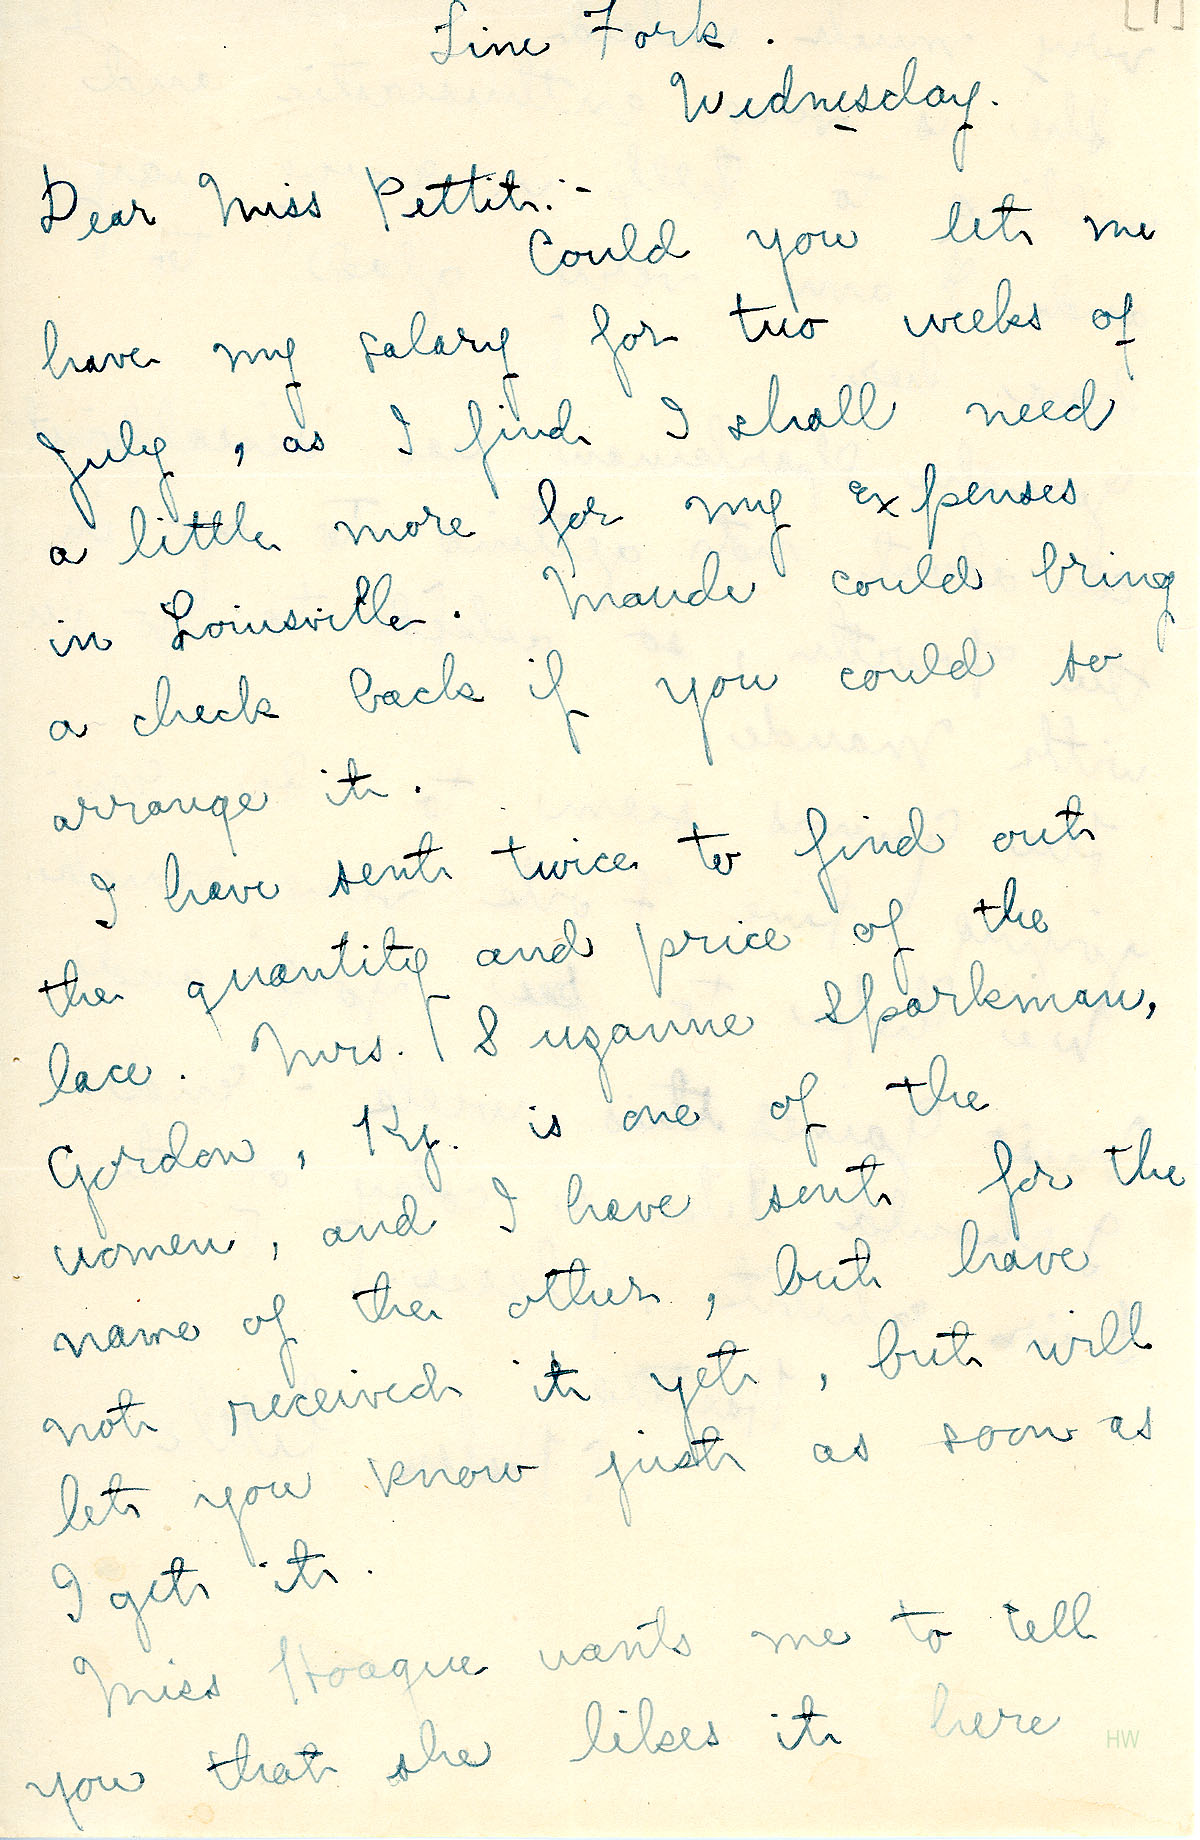 [1]
Line Fork.
Wednesday.
Dear Miss Pettit:-
Could you let me
have my salary for two weeks of
July, as I find I shall need
a little more for my expenses
in Louisville. Maude could bring
a check back if you could so
arrange it.
I have sent twice to find out
the quantity and price of the
lace. Mrs. Suzanne Sparkman,
Gordon, Ky. is one of the
women, and I have sent for the
name of the other, but have
not received it yet, but will
let you know just as soon as
I get it.
Miss Hoague wants me to tell
you that she likes it here
HW